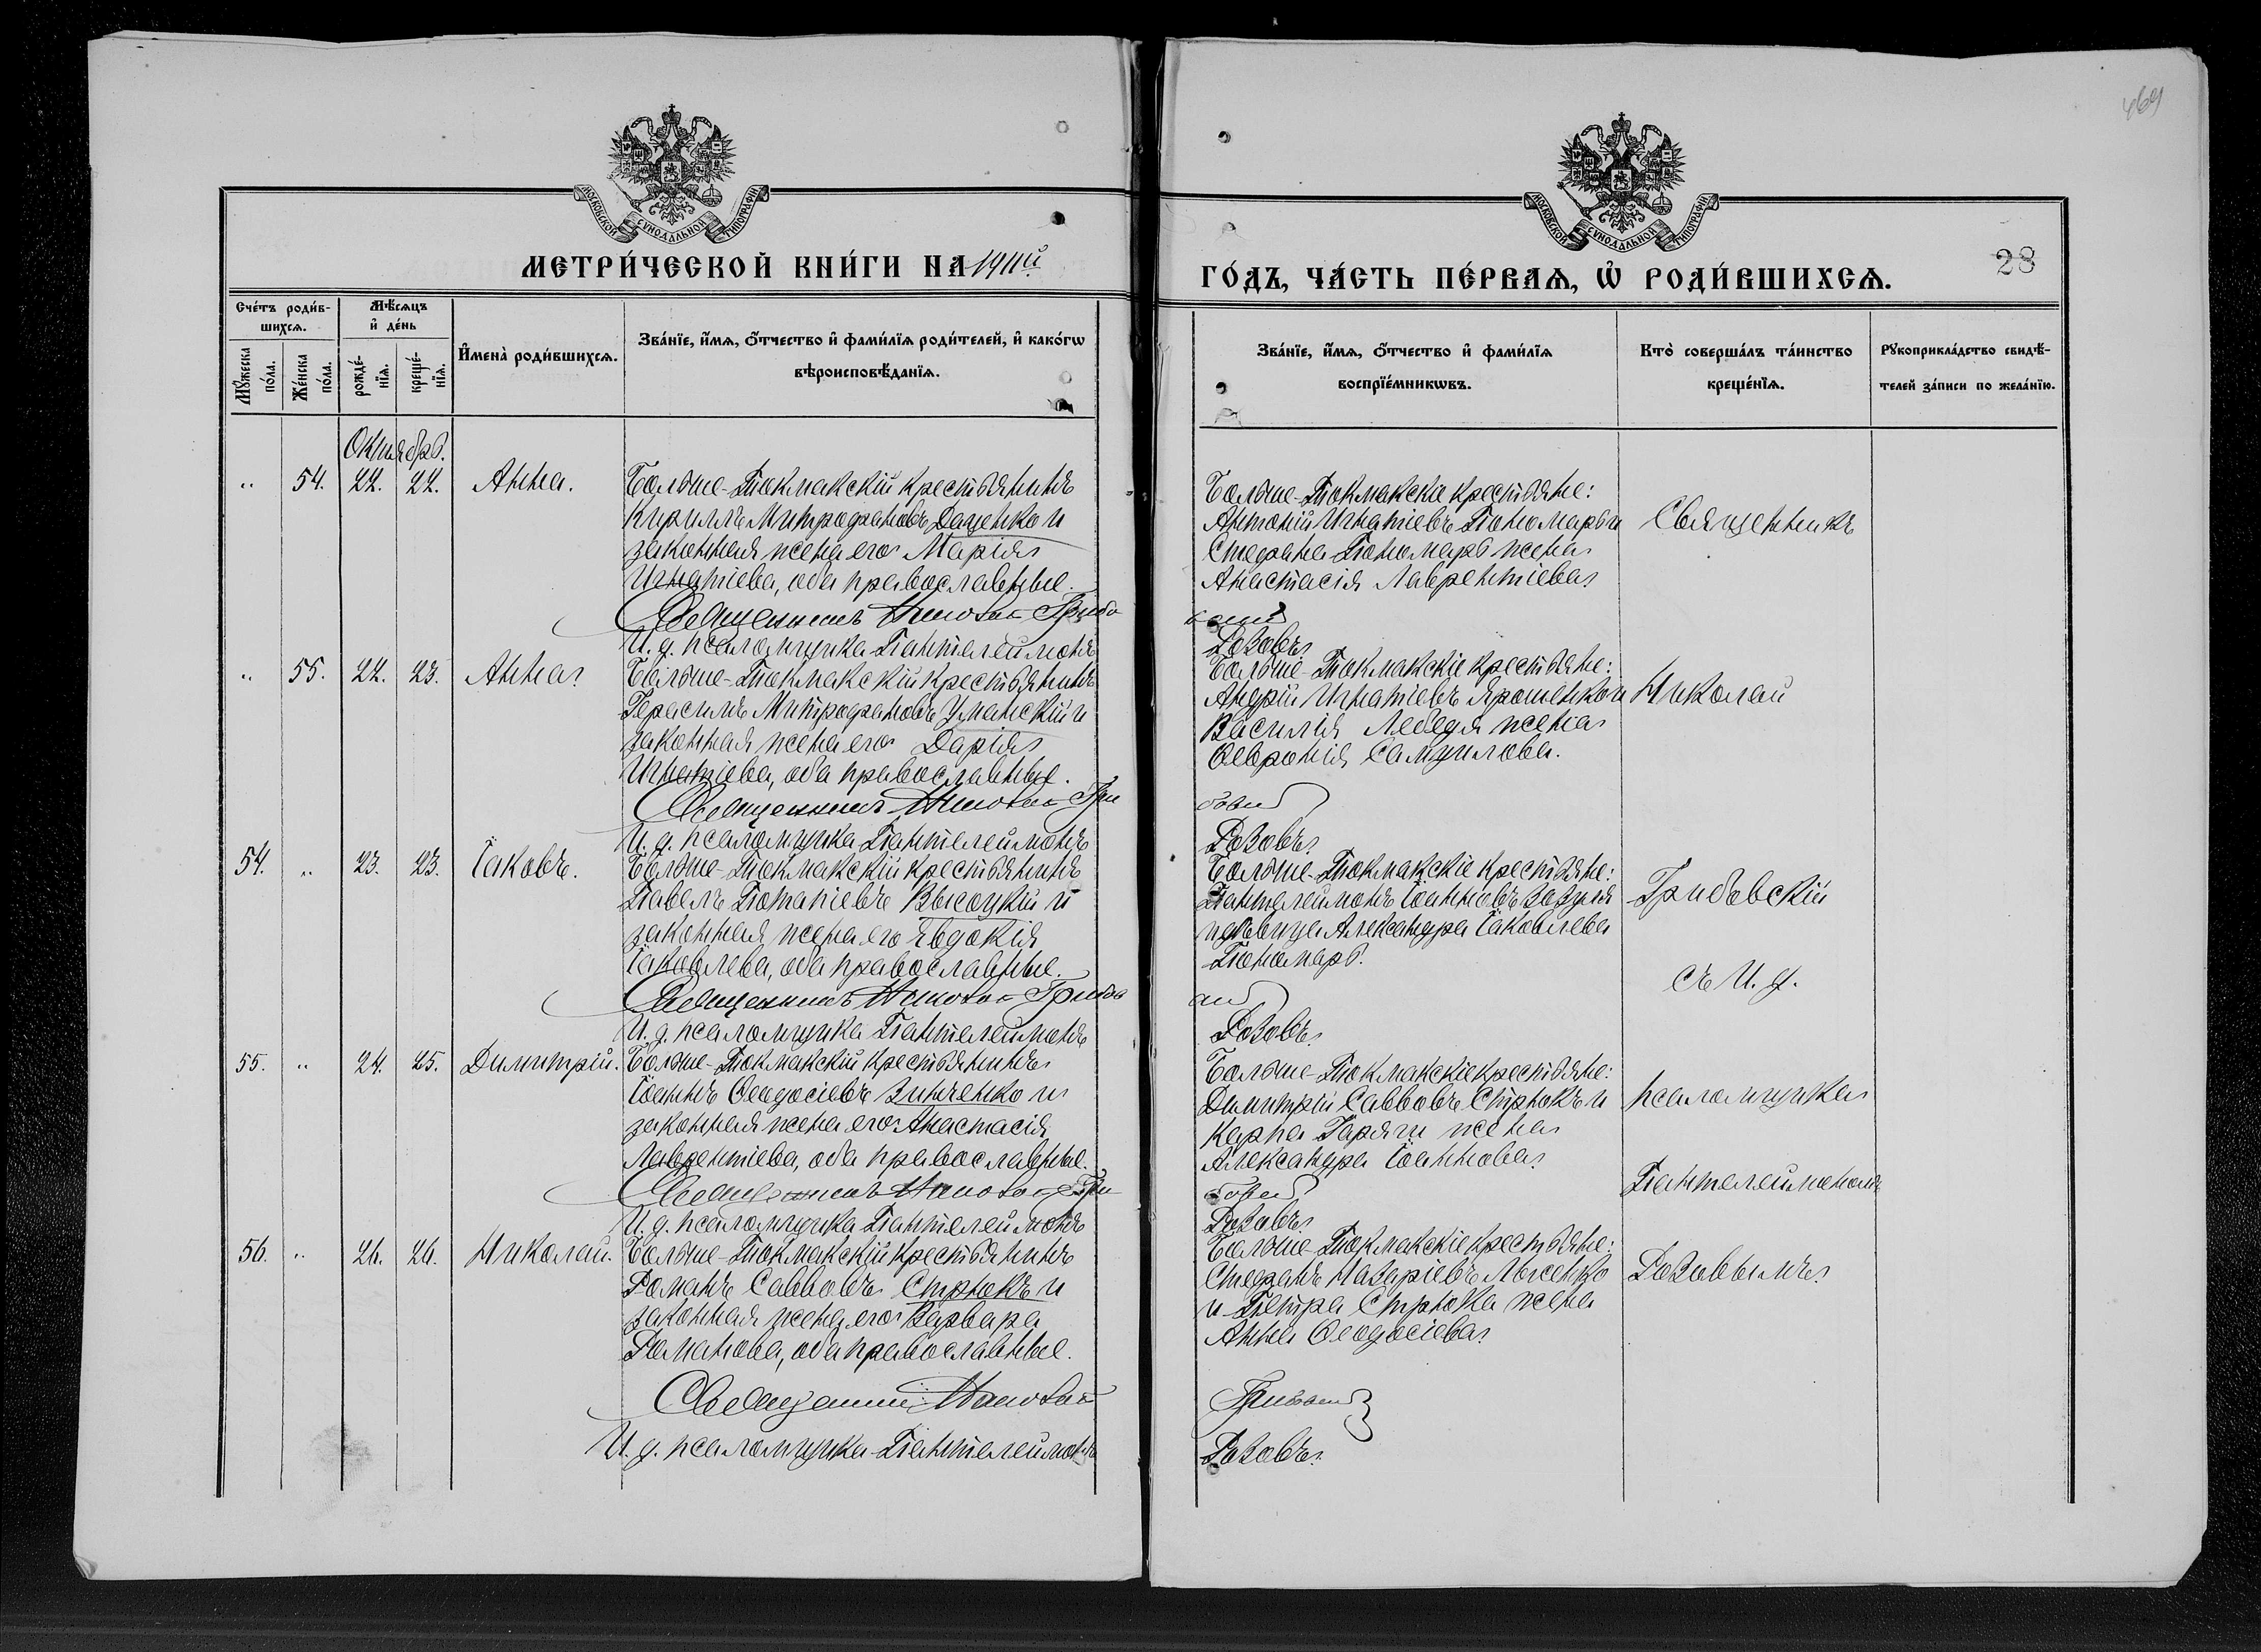 469
МОСКОВСКОЙ СѴНОДАЛЬНОЙ ТИПОГРАФІИ
МОСКОВСКОЙ СѴНОДАЛЬНОЙ ТИПОГРАФІИ
МЕТРИ́ЧЕСКОЙ КНИ́ГИ НА 1911й
ГО́ДЪ, ЧА́СТЬ ПЕ́РВАѦ, Ѡ҆ РОДИ́ВШИХСѦ.
28
Сче́тъ роди́в-
шихсѧ.
Мѣ́сѧцъ
и҆ де́нь
Мꙋ́жеска
по́ла.
Же́нска
по́ла.
рожде́-
нїѧ.
креще́-
нїѧ.
И҆мена̀ роди́вшихсѧ.
Зва́нїе, и҆́мѧ, ѻ҆́тчество и҆ фами́лїѧ роди́телей, и҆ како́гѡ
вѣроисповѣ́данїѧ.
Зва́нїе, и҆́мѧ, ѻ҆́тчество и҆ фами́лїѧ
воспрїе́мникѡвъ.
Кто̀ соверша́лъ та́инство
креще́нїѧ.
Рꙋкоприкла́дство свидѣ́-
телей за́писи по жела́нїю.
Октябрь.
" 54. 22. 22. Анна.
Больше-Токмакскій крестьянинъ
Кириллъ Митрофановъ Даценко и
законная жена его Марія
Игнатіева, оба православные.
Священникъ Николай Грибо
И. д. псаломщика Пантелеймонъ
Больше-Токмакскіе крестьяне:
Антоній Игнатіевъ Пономарь и
Стефана Пономарь жена
Анастасія Лаврентіева
вскій
Розовъ
Священникъ
" 55. 22. 23. Анна
Больше-Токмакскій крестьянинъ
Герасимъ Митрофановъ Уманскій и
законная жена его Дарія
Игнатіева, оба православные.
Священникъ Николай Гри
И. д. псаломщика Пантелеймонъ
Больше-Токмакскіе крестьяне:
Андрій Игнатіевъ Ярошенко и
Василія Лебедя жена
Ѳевронія Самуилова.
бовскій
Розовъ
Николай
54. " 23. 23. Іаковъ.
Больше-Токмакскій крестьянинъ
Павелъ Потапіевъ Высоцкій и
законная жена его Евдокія
Іаковлева, оба православные.
Священникъ Николай Грибов
И. д. псаломщика Пантелеймонъ
Больше-Токмакскіе крестьяне:
Пантелеймонъ Іоанновъ Зозуля
и девица Александра Іаковлева
Пономарь.
скій
Розовъ
Грибовскій
съ И. д.
55. " 24. 25. Димитрій.
Больше-Токмакскій крестьянинъ
Іоаннъ Ѳеодосіевъ Зинченко и
законная жена его Анастасія
Лаврентіева, оба православные.
Священникъ Николай Гри
И. д. псаломщика Пантелеймонъ
Больше-Токмакскіе крестьяне:
Димитрій Савовъ Стрюкъ и
Карпа Гаряги жена
Александра Іоаннова
бовскій
Розовъ
псаломщика
Пантелеймономъ
56. " 26. 26. Николай.
Больше-Токмакскій крестьянинъ
Романъ Саввовъ Стрюкъ и
законная жена его Варвара
Романова, оба православные.
Священникъ Николай
И. д. псаломщика Пантелеймонъ
Больше-Токмакскіе крестьяне:
Стефанъ Назаріевъ Лысенко
и Петра Стрюка жена
Анна Ѳеодосіева
Грибовскій
Розовъ
Розовымъ